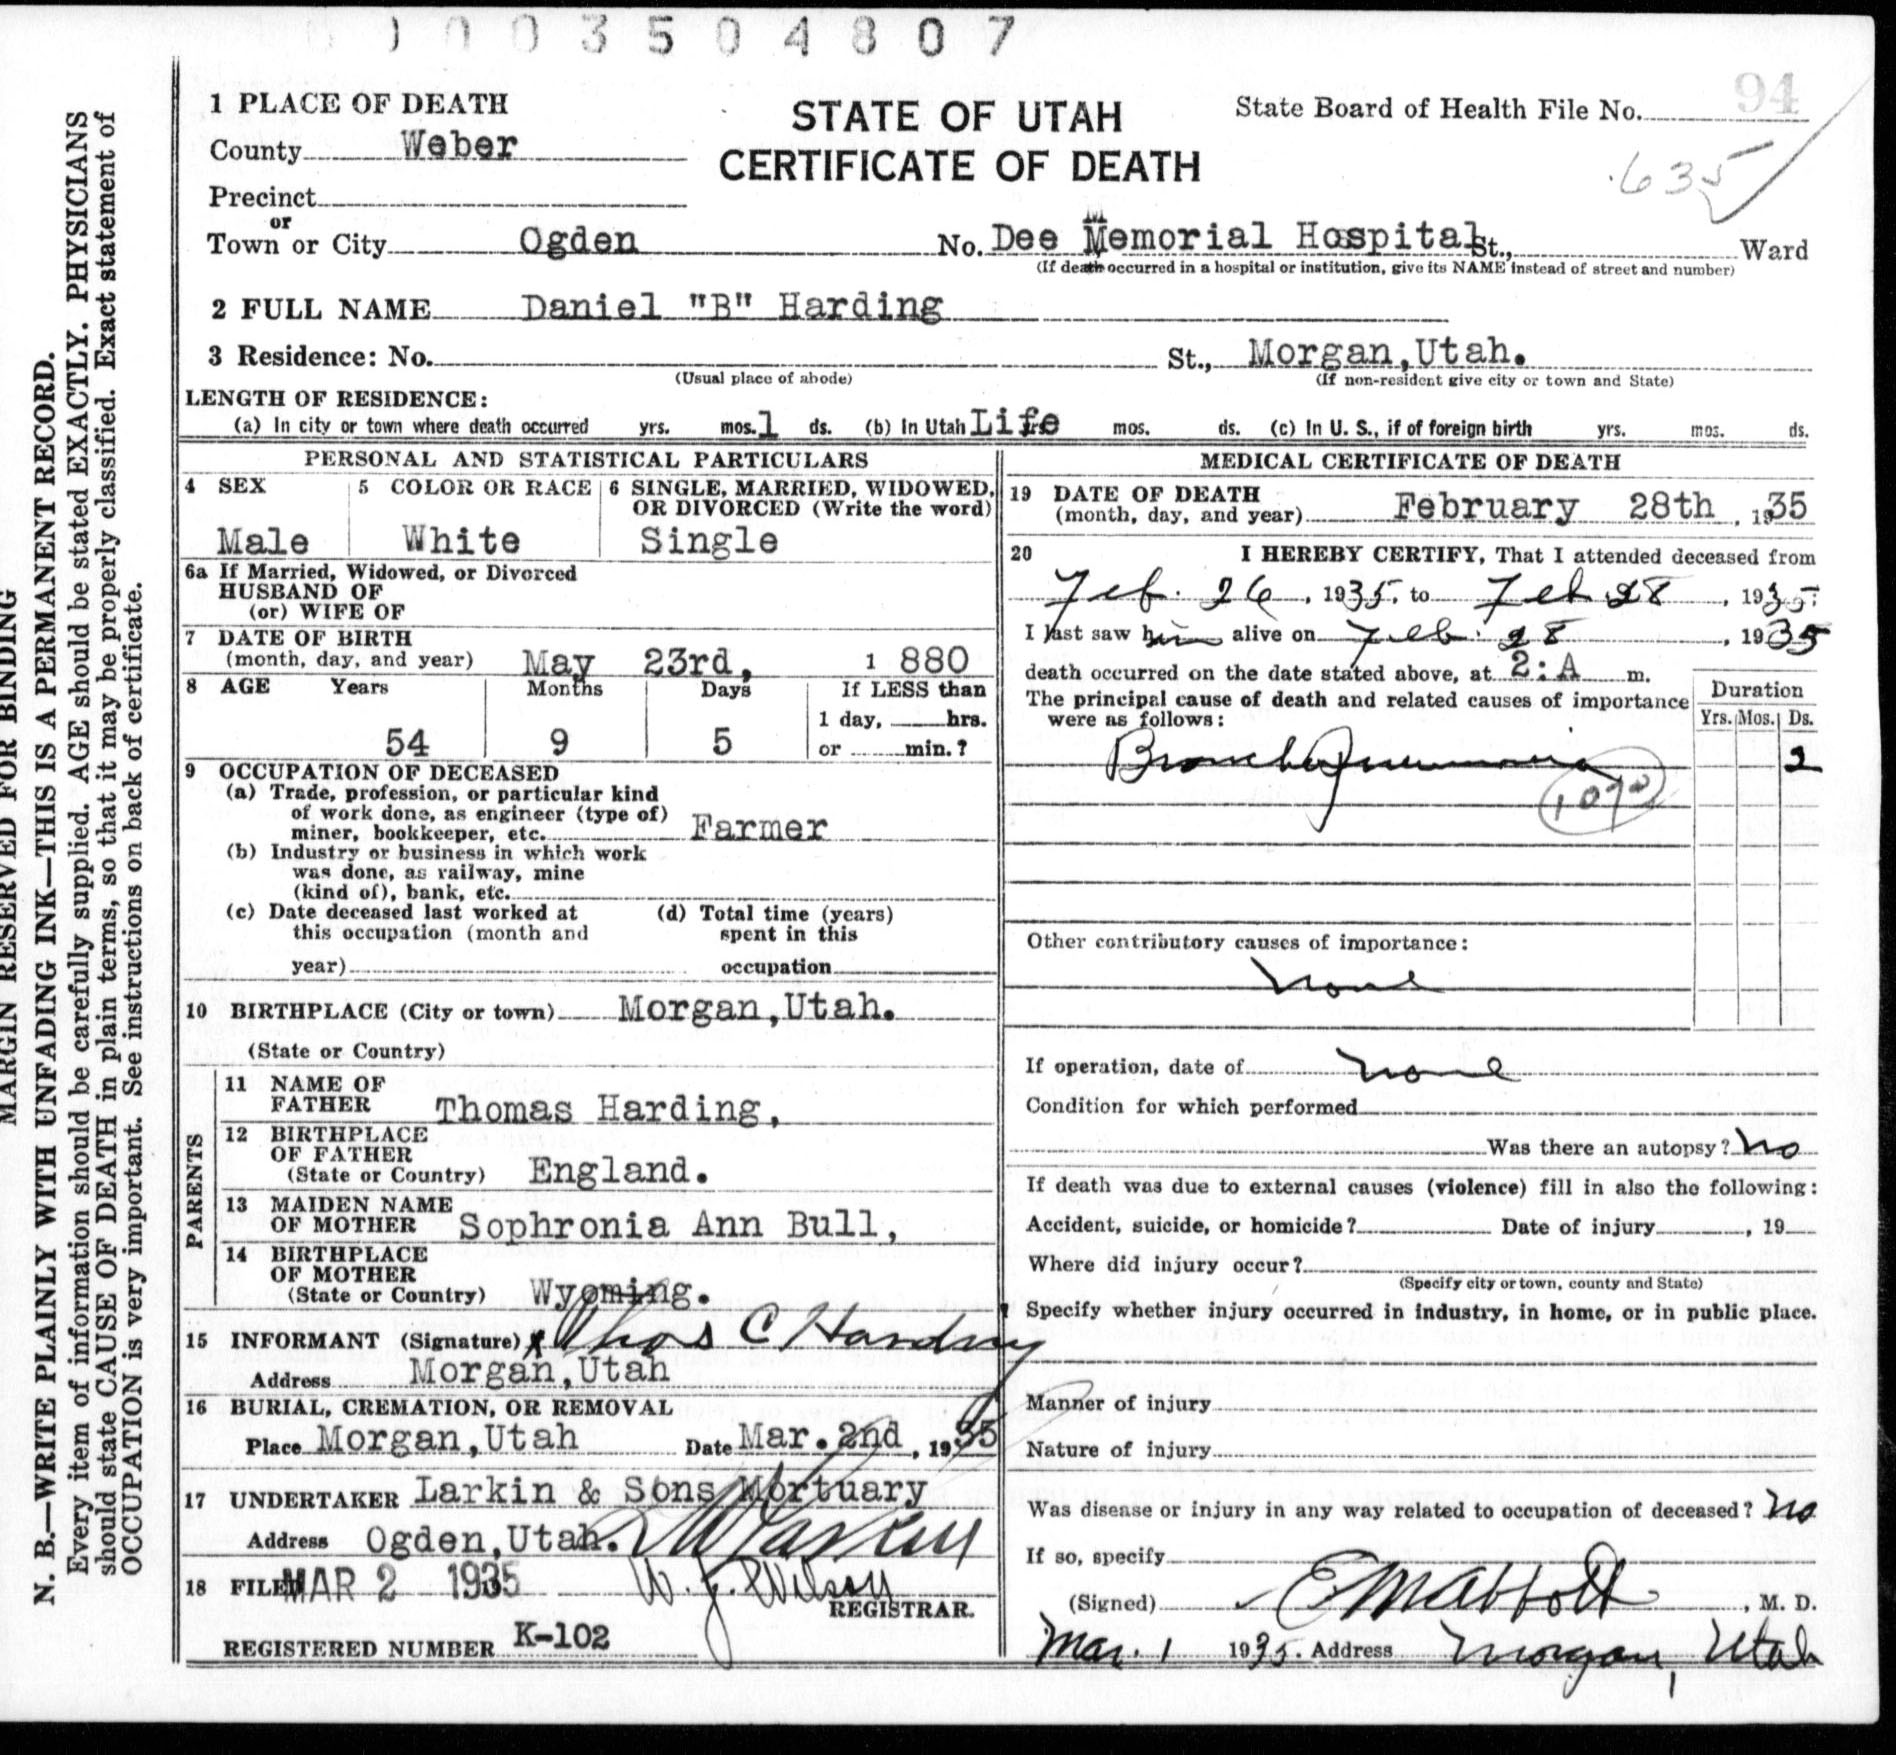 0003504807
1 PLACE OF DEATH
STATE OF UTAH
CERTIFICATE OF DEATH
State Board of Health File No. 94
635
County Weber
Precinct
or
Town or City Ogden No. Dee Memorial Hospital St., Ward
(If death occurred in a hospital or institution, give its NAME instead of street and number)
2 FULL NAME Daniel "B" Harding
3 Residence: No. St., Morgan,Utah.
(Usual place of abode) (If non-resident give city or town and State)
LENGTH OF RESIDENCE:
(a) In city or town where death occurred yrs. mos. 1 ds. (b) In Utah Life mos. ds. (c) In U. S., if of foreign birth yrs. mos. ds.
PERSONAL AND STATISTICAL PARTICULARS
4 SEX 5 COLOR OR RACE 6 SINGLE, MARRIED, WIDOWED,
OR DIVORCED (Write the word)
Male White Single
6a If Married, Widowed, or Divorced
HUSBAND OF
(or) WIFE OF
7 DATE OF BIRTH
(month, day, and year) May 23rd, 1 880
8 AGE Years Months Days If LESS than
1 day, hrs.
54 9 5 or min.?
9 OCCUPATION OF DECEASED
(a) Trade, profession, or particular kind
of work done, as engineer (type of)
miner, bookkeeper, etc. Farmer
(b) Industry or business in which work
was done, as railway, mine
(kind of), bank, etc.
(c) Date deceased last worked at (d) Total time (years)
this occupation (month and spent in this
year) occupation
10 BIRTHPLACE (City or town) Morgan,Utah.
(State or Country)
PARENTS
11 NAME OF
FATHER Thomas Harding,
12 BIRTHPLACE
OF FATHER
(State or Country) England.
13 MAIDEN NAME
OF MOTHER Sophronia Ann Bull,
14 BIRTHPLACE
OF MOTHER
(State or Country) Wyoming.
15 INFORMANT (Signature) x Thos C Harding
Address Morgan,Utah
16 BURIAL, CREMATION, OR REMOVAL
Place Morgan,Utah Date Mar.2nd, 1935
17 UNDERTAKER Larkin & Sons Mortuary
Address Ogden,Utah.
18 FILED MAR 2 1935 W. J. Wilson
REGISTRAR.
REGISTERED NUMBER K-102
MEDICAL CERTIFICATE OF DEATH
19 DATE OF DEATH
(month, day, and year) February 28th, 1935
20 I HEREBY CERTIFY, That I attended deceased from
Feb. 26, 1935, to Feb 28, 1935.
I last saw him alive on Feb. 28, 1935
death occurred on the date stated above, at 2:A m.
The principal cause of death and related causes of importance
were as follows:
Duration
Yrs. Mos. Ds.
Broncho Pneumonia 2
Other contributory causes of importance:
none
If operation, date of none
Condition for which performed
Was there an autopsy? no
If death was due to external causes (violence) fill in also the following:
Accident, suicide, or homicide? Date of injury , 19
Where did injury occur?
(Specify city or town, county and State)
Specify whether injury occurred in industry, in home, or in public place.
Manner of injury
Nature of injury
Was disease or injury in any way related to occupation of deceased? no
If so, specify
(Signed) E M Abbott, M. D.
Mar. 1 1935. Address Morgan, Utah
MARGIN RESERVED FOR BINDING
N. B.—WRITE PLAINLY WITH UNFADING INK—THIS IS A PERMANENT RECORD.
Every item of information should be carefully supplied. AGE should be stated EXACTLY. PHYSICIANS
should state CAUSE OF DEATH in plain terms, so that it may be properly classified. Exact statement of
OCCUPATION is very important. See instructions on back of certificate.